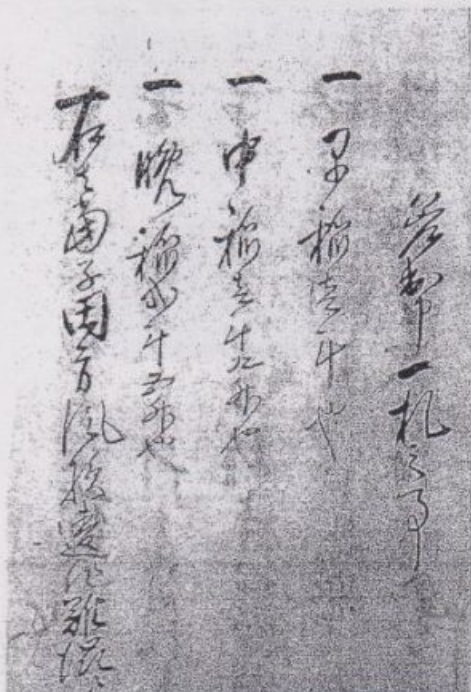 差出申一札之事
一 早稲壱斗也
一 中稲壱斗九升也
一 晩稲弐斗五升也
右者当子田方風損違作難渋